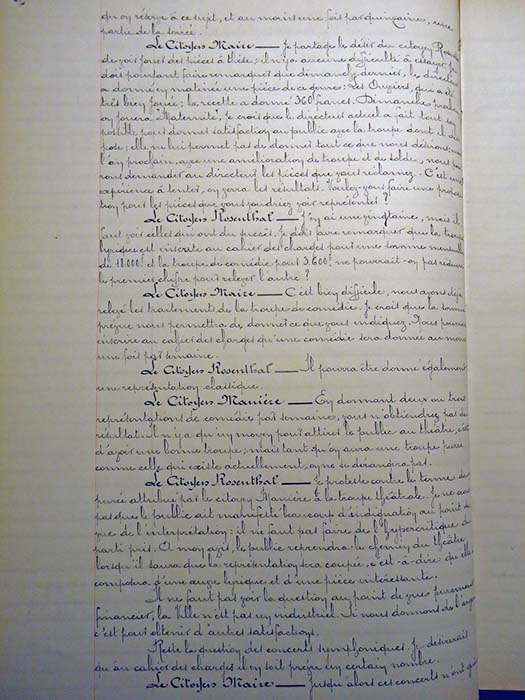 qu'on réserve à ce sujet, et au moins une fois par quinzaine, une
partie de la soirée.
Le Citoyen Maire — Je partage le désir du citoyen
de voir jouer des pièces à thèse; il n'y a aucune difficulté à essayer. Je
dois pourtant faire remarquer que dimanche dernier, le
a donné en matinée une pièce de ce genre: Les Ouvriers, qui a été
très bien jouée; la recette a donné 360 francs. Dimanche
on jouera "Maternité". Je crois que le directeur actuel a fait tout son
possible pour donner satisfaction au public avec la troupe dont il
pose; elle ne lui permet pas de donner tout ce que nous désirons;
l'an prochain, avec une amélioration de troupe et de solde, nous
rons demander au directeur les pièces que vous réclamez. C'est une
expérience à tenter, on verra les résultats. Voulez-vous faire une
tion pour les pièces que vous voudriez voir représenter?
Le Citoyen Rosenthal — J'en ai une vingtaine, mais il
faut voir celles qui ont du succès. Je dois faire remarquer que la troupe
lyrique est inscrite au cahier des charges pour une somme mensuelle
de 18.000f et la troupe de comédie pour 3.600f ne pourrait-on pas réduire
le premier chiffre pour relever l'autre?
Le Citoyen Maire — C'est bien difficile, nous avons déjà
relevé les traitements de la troupe de comédie. Je crois que la somme
prévue nous permettra de donner ce que vous indiquez. Nous pourrions
inscrire au cahier des charges qu'une comédie sera donnée au moins
une fois par semaine.
Le Citoyen Rosenthal — Il pourra être donné également
une représentation classique.
Le Citoyen Manière — En donnant deux ou trois
représentations de comédie par semaine, vous n'obtiendrez pas de
résultat. Il n'y a qu'un moyen pour attirer le public au théâtre, c'est
d'avoir une bonne troupe; mais tant qu'on aura une troupe purée
comme celle qui existe actuellement, on ne se dérangera pas.
Le Citoyen Rosenthal — Je proteste contre le terme de
purée attribué par le citoyen Manière à la troupe théâtrale. Je ne crois
pas que le public ait manifesté beaucoup d'indignation au point de
vue de l'interprétation: il ne faut pas faire de l'hypercritique de
parti pris. A mon avis, le public reprendra le chemin du théâtre
lorsqu'il saura que la représentation sera coupée, c'est-à-dire qu'elle
composera d'une œuvre lyrique et d'une pièce intéressante.
Il ne faut pas voir la question au point de vue purement
financier, la Ville n'est pas un industriel. Si nous donnons de l'argent
c'est pour obtenir d'autres satisfactions.
Reste la question des concerts symphoniques. Je désirerais
qu'au cahier des charges il en soit prévu un certain nombre.
Le Citoyen Maire — Jusqu'alors ces concerts n'ont